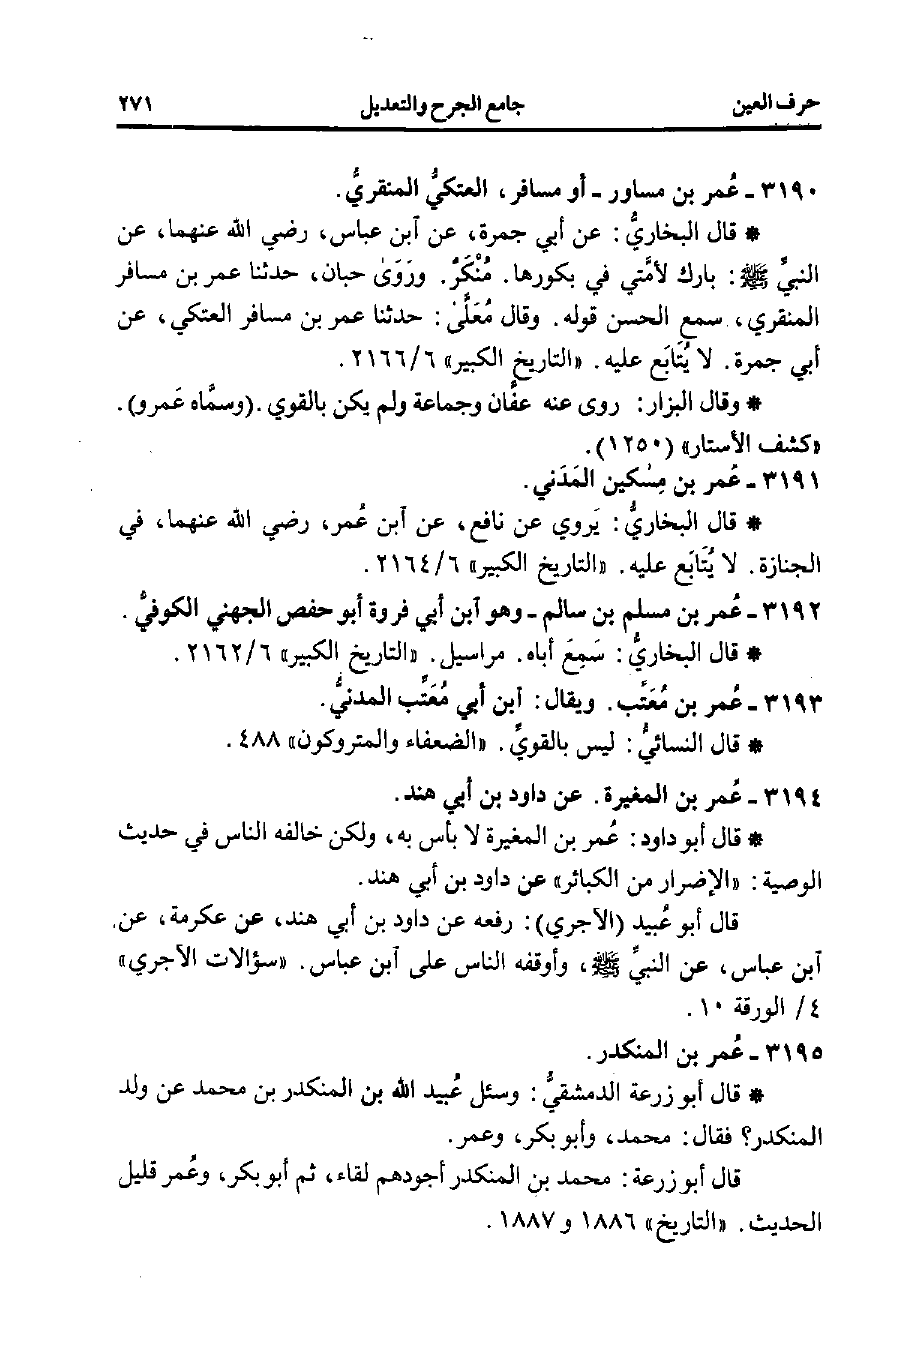 حرف العين جامع الجرح والتعديل ٢٧١
٣١٩٠ ـ عُمر بن مساور ـ أو مسافر، العتكيُّ المنقريُّ.
* قال البخاريُّ: عن أبي جمرة، عن آبن عباس، رضي الله عنهما، عن
النبيِّ ﷺ: بارك لأمَّتي في بكورها. مُنْكَرٌ. ورَوَىٰ حبان، حدثنا عمر بن مسافر
المنقري، سمع الحسن قوله. وقال مُعَلَّىٰ: حدثنا عمر بن مسافر العتكي، عن
أبي جمرة. لا يُتَابَع عليه. «التاريخ الكبير» ٢١٦٦/٦.
* وقال البزار: روى عنه عفَّان وجماعة ولم يكن بالقوي.(وسمَّاه عَمرو).
«كشف الأستار» (١٢٥٠).
٣١٩١ ـ عُمر بن مِسْكين المَدَني.
* قال البخاريُّ: يَروي عن نافع، عن آبن عُمر، رضي الله عنهما، في
الجنازة. لا يُتَابَع عليه. «التاريخ الكبير» ٢١٦٤/٦.
٣١٩٢ ـ عُمر بن مسلم بن سالم ـ وهو آبن أبي فروة أبو حفص الجهني الكوفيُّ.
* قال البخاريُّ: سَمِعَ أباه. مراسيل. «التاريخ الكبير» ٢١٦٢/٦.
٣١٩٣ ـ عُمر بن مُعَتِّب. ويقال: آبن أبي مُعَتِّب المدنيُّ.
* قال النسائيُّ: ليس بالقويِّ. «الضعفاء والمتروكون» ٤٨٨.
٣١٩٤ ـ عُمر بن المغيرة. عن داود بن أبي هند.
* قال أبو داود: عُمر بن المغيرة لا بأس به، ولكن خالفه الناس في حديث
الوصية: «الإضرار من الكبائر» عن داود بن أبي هند.
قال أبو عُبيد (الآجري): رفعه عن داود بن أبي هند، عن عكرمة، عن
آبن عباس، عن النبيِّ ﷺ، وأوقفه الناس على آبن عباس. «سؤالات الآجري»
٤/ الورقة ١٠.
٣١٩٥ ـ عُمر بن المنكدر.
* قال أبو زرعة الدمشقيُّ: وسئل عُبيد الله بن المنكدر بن محمد عن ولد
المنكدر؟ فقال: محمد، وأبو بكر، وعمر.
قال أبو زرعة: محمد بن المنكدر أجودهم لقاء، ثم أبو بكر، وعُمر قليل
الحديث. «التاريخ» ١٨٨٦ و ١٨٨٧.